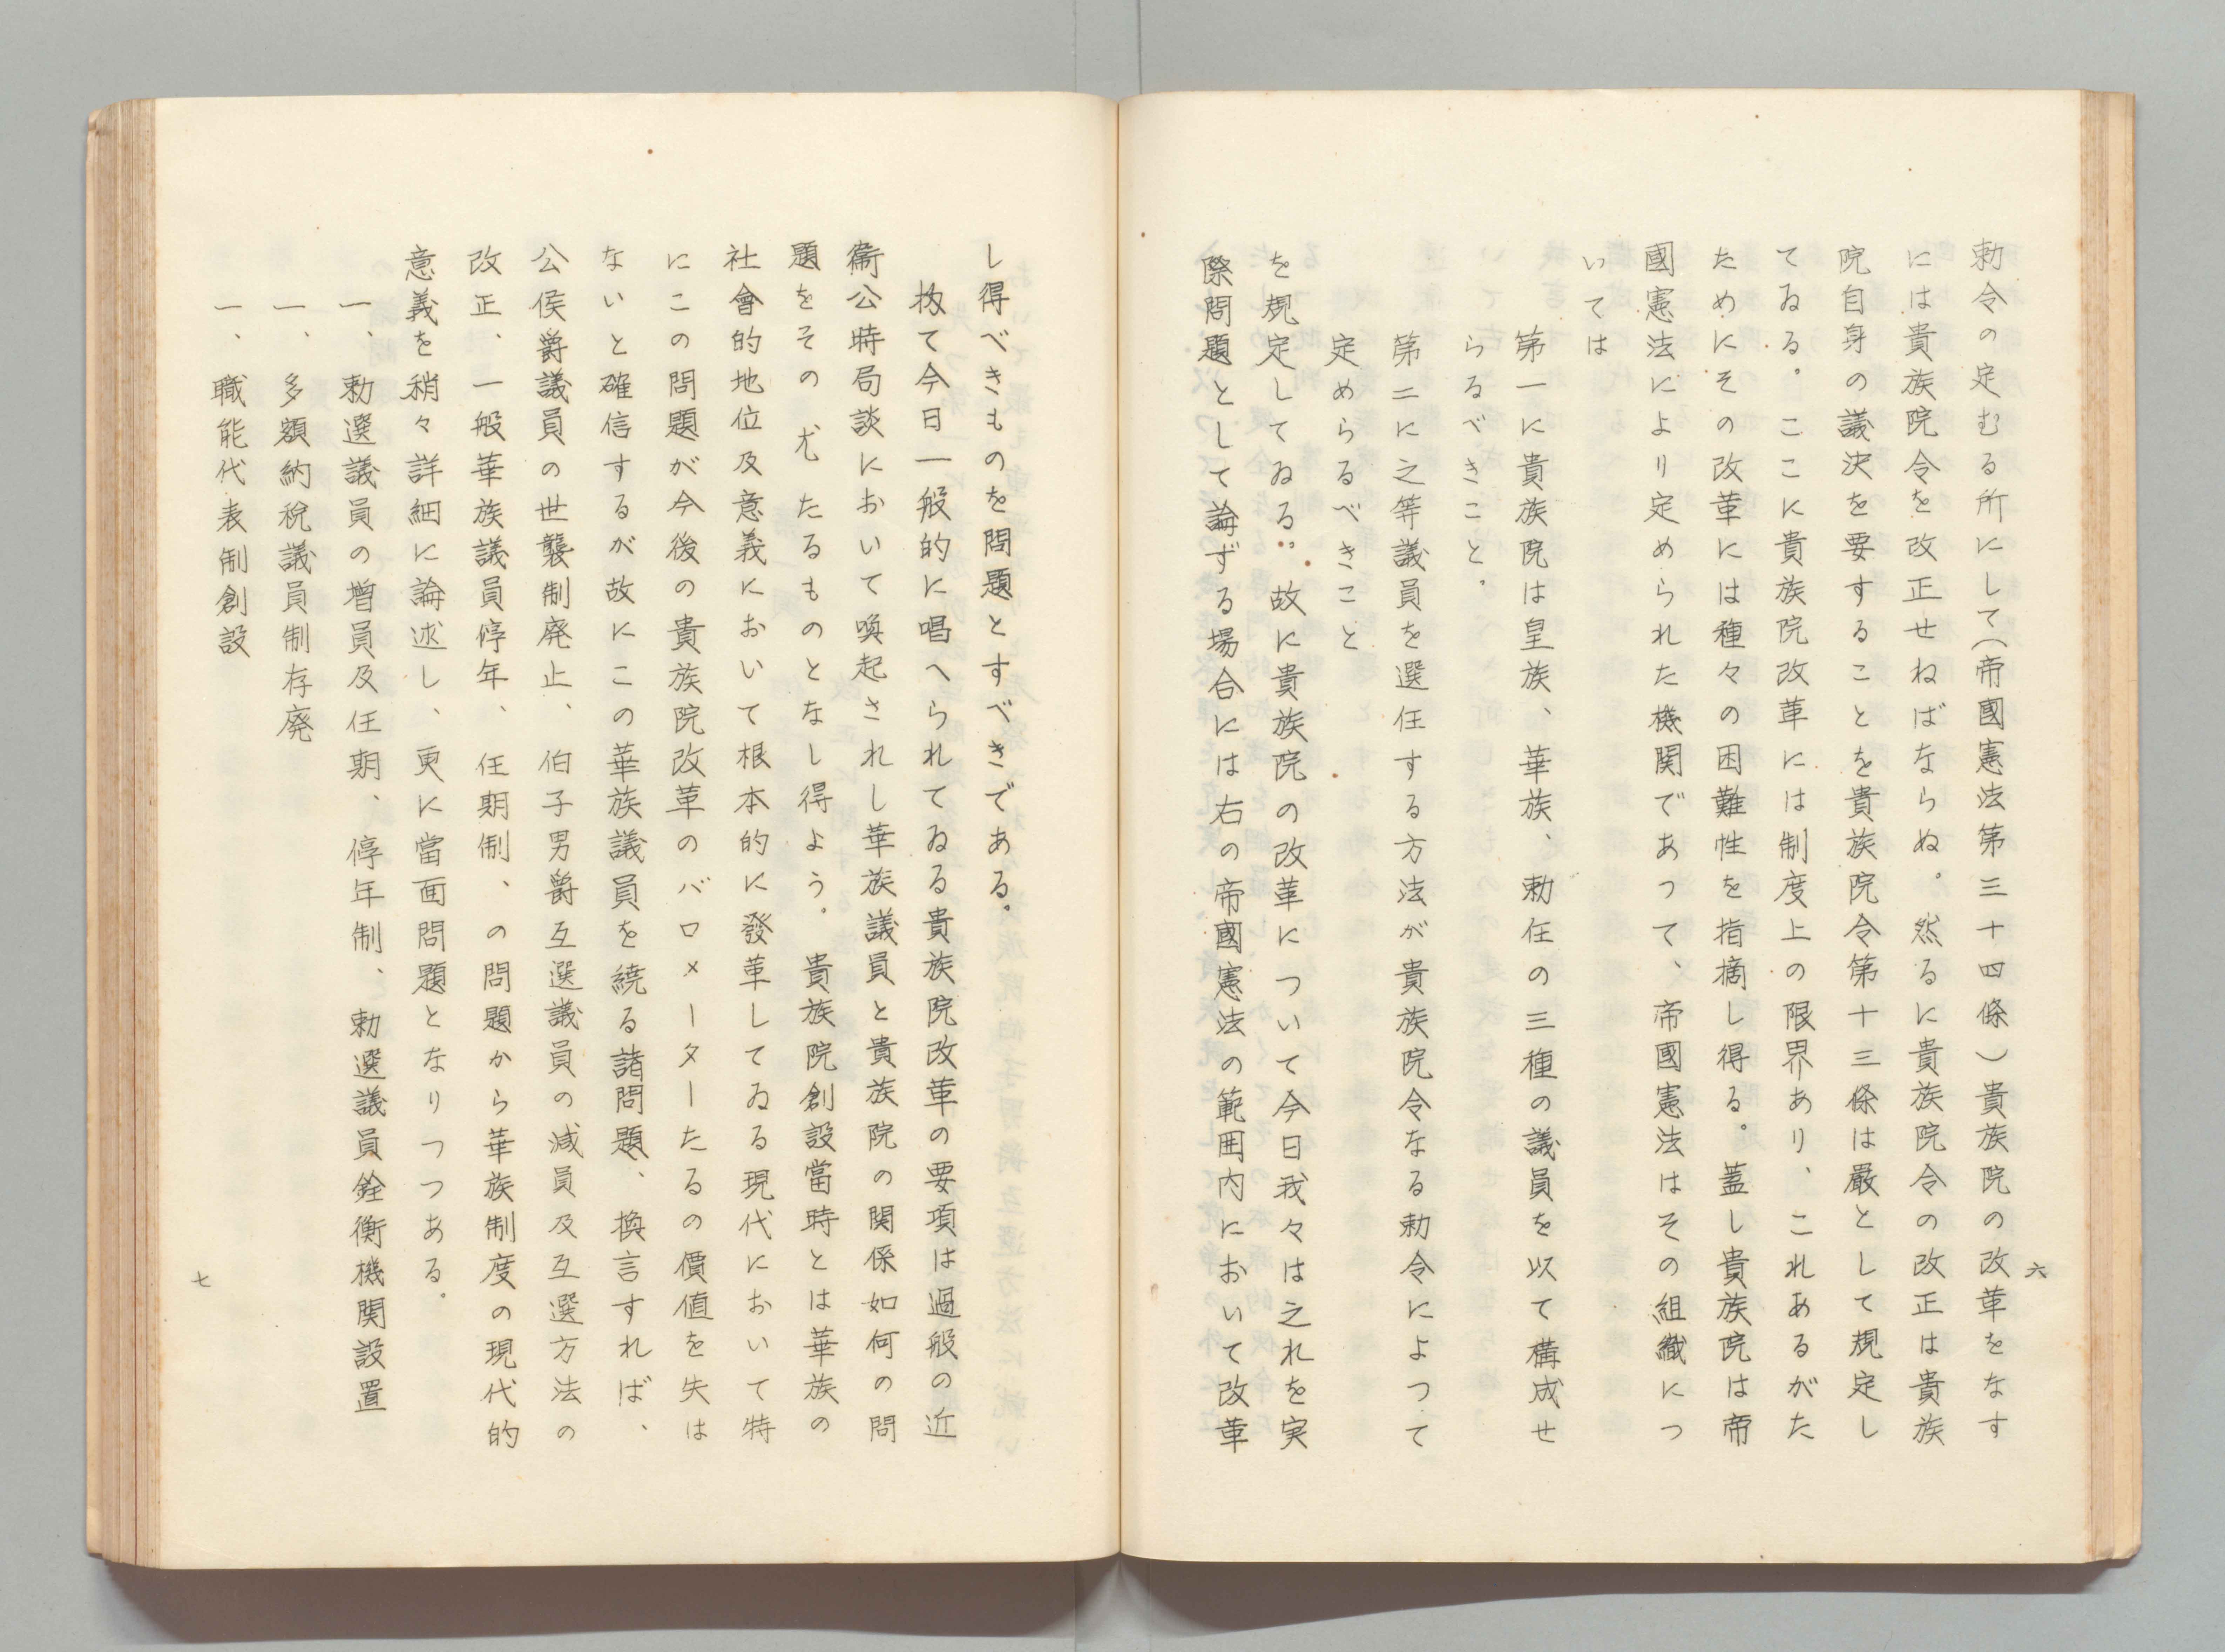 六
勅令の定むる所にして（帝國憲法第三十四條）貴族院の改革をなす
には貴族院令を改正せねばならぬ。然るに貴族院令の改正は貴族
院自身の議決を要することを貴族院令第十三條は嚴として規定し
てゐる。ここに貴族院改革には制度上の限界あり、これあるがた
ためにその改革には種々の困難性を指摘し得る。蓋し貴族院は帝
國憲法により定められた機関であつて、帝國憲法はその組織につ
いては
第一に貴族院は皇族、華族、勅任の三種の議員を以て構成せ
らるべきこと。
第二に之等議員を選任する方法が貴族院令なる勅令によつて
定めらるべきこと
を規定してゐる。故に貴族院の改革について今日我々は之れを実
際問題として論ずる場合には右の帝國憲法の範囲内において改革
し得べきものを問題とすべきである。
扨て今日一般的に唱へられてゐる貴族院改革の要項は過般の近
衞公時局談において喚起されし華族議員と貴族院の関係如何の問
題をその尤たるものとなし得よう。貴族院創設當時とは華族の
社會的地位及意義において根本的に發革してゐる現代において特
にこの問題が今後の貴族院改革のバロメーターたるの價値を失は
ないと確信するが故にこの華族議員を繞る諸問題、換言すれば、
公侯爵議員の世襲制廃止、伯子男爵互選議員の減員及互選方法の
改正、一般華族議員停年、任期制、の問題から華族制度の現代的
意義を稍々詳細に論述し、更に當面問題となりつつある。
一、勅選議員の増員及任期、停年制、勅選議員銓衡機関設置
一、多額納税議員制存廃
一、職能代表制創設
七